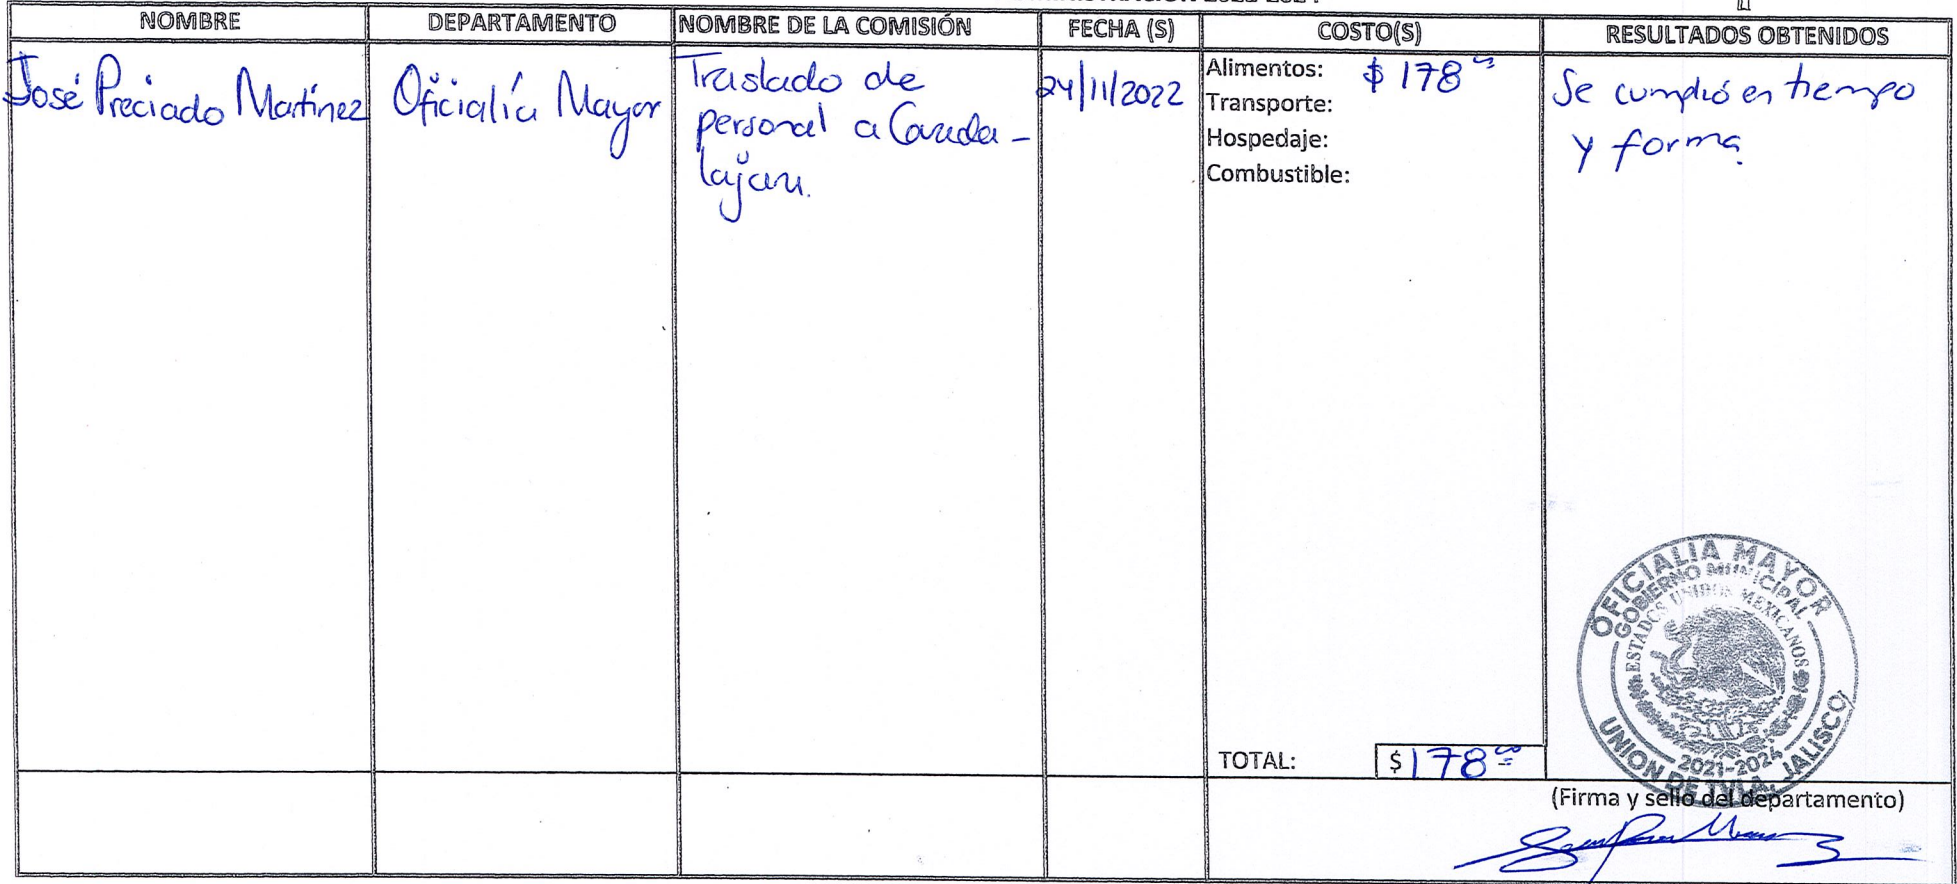 NOMBRE DEPARTAMENTO NOMBRE DE LA COMISIÓN FECHA (S) COSTO(S) RESULTADOS OBTENIDOS
José Preciado Martínez
Oficialía Mayor
Traslado de
personal a Guada-
lajara.
24/11/2022
Alimentos: $178
Transporte:
Hospedaje:
Combustible:
Se cumplió en tiempo
y forma
TOTAL: $178
OFICIALIA MAYOR
GOBIERNO MUNICIPAL
ESTADOS UNIDOS MEXICANOS
2021-2024
UNION DE TULA, JALISCO
(Firma y sello del departamento)